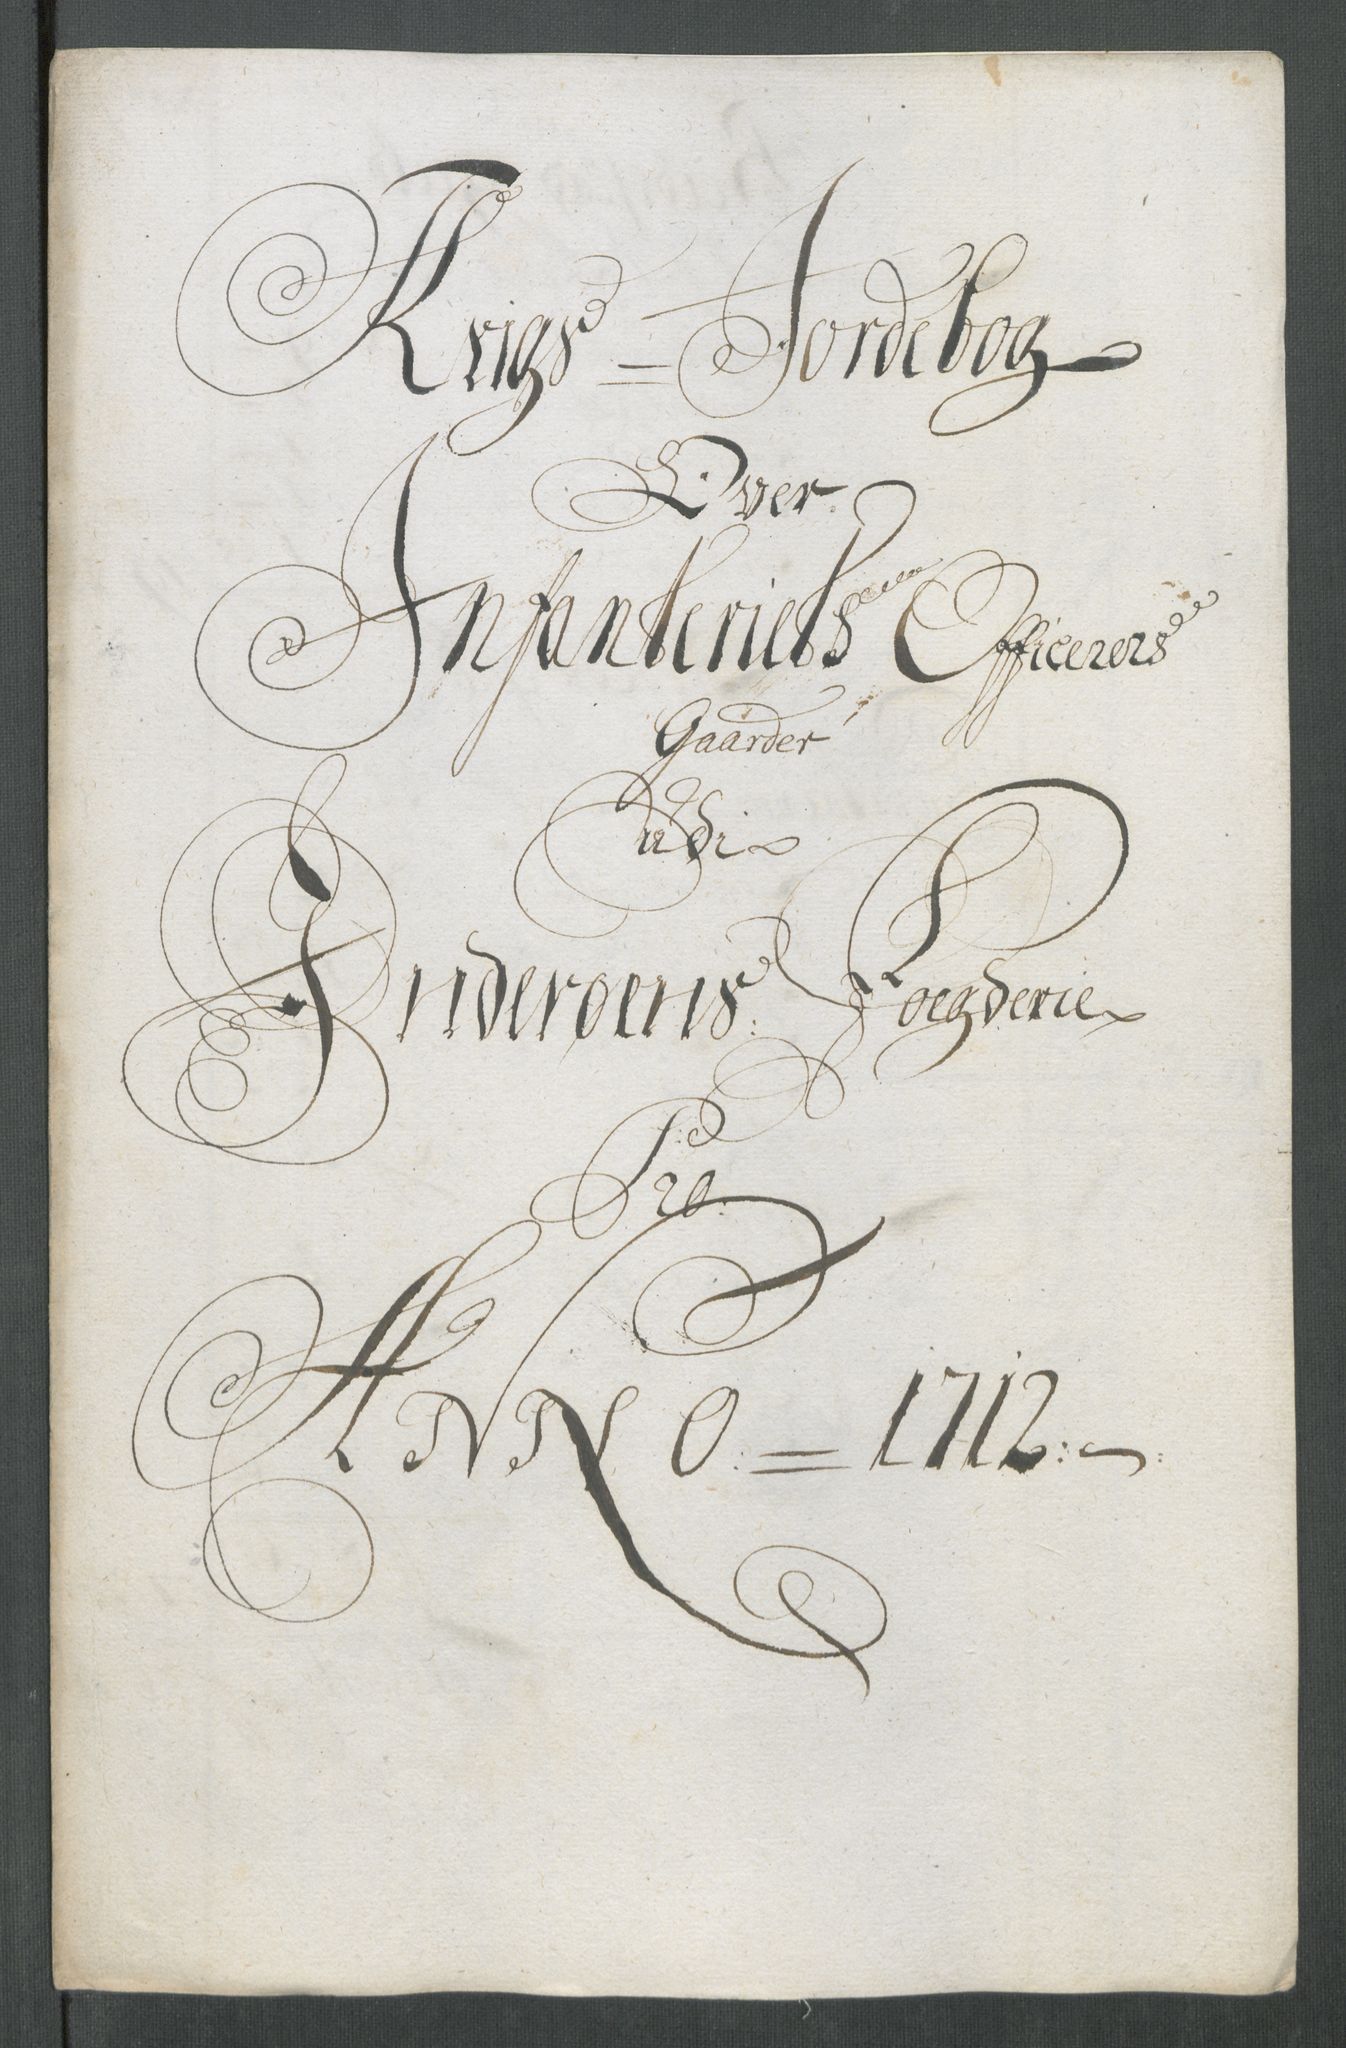 Krigs = Jordebog
Over
Infanteriets Officerers
Gaarder
udi
Inderoens Foegderie
Pro
ANNO. = 1712.